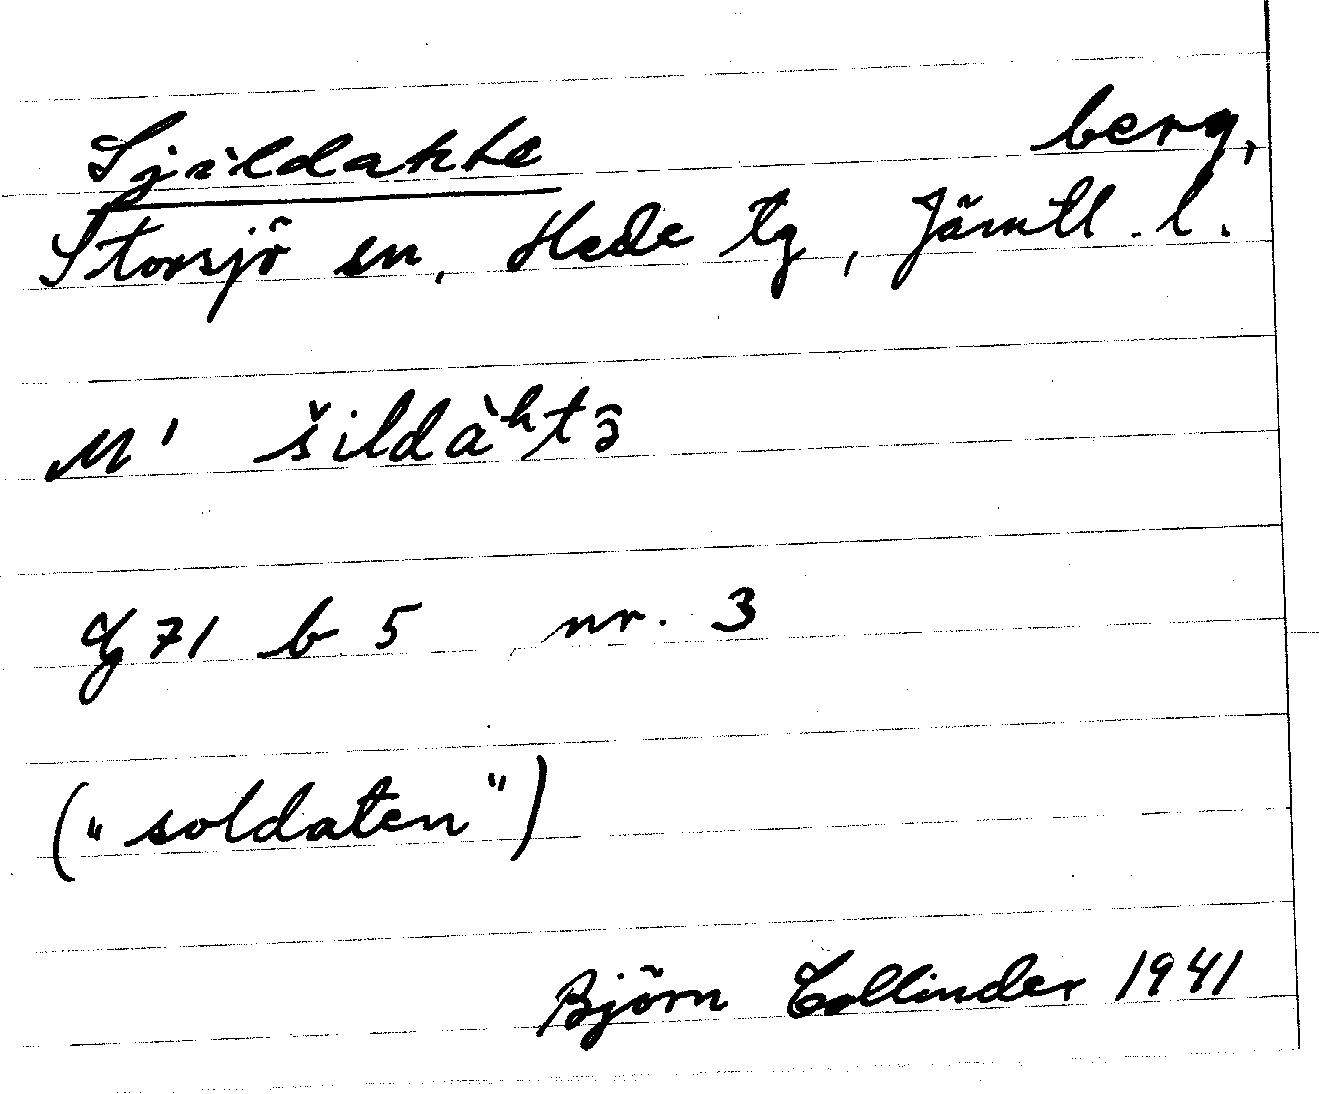 Sjildahte berg,
Storsjö sn, Hede tg, Jämtl. l.
M' šildàʰtə̑
G 71 b 5 nr. 3
("soldaten")
Björn Collinder 1941